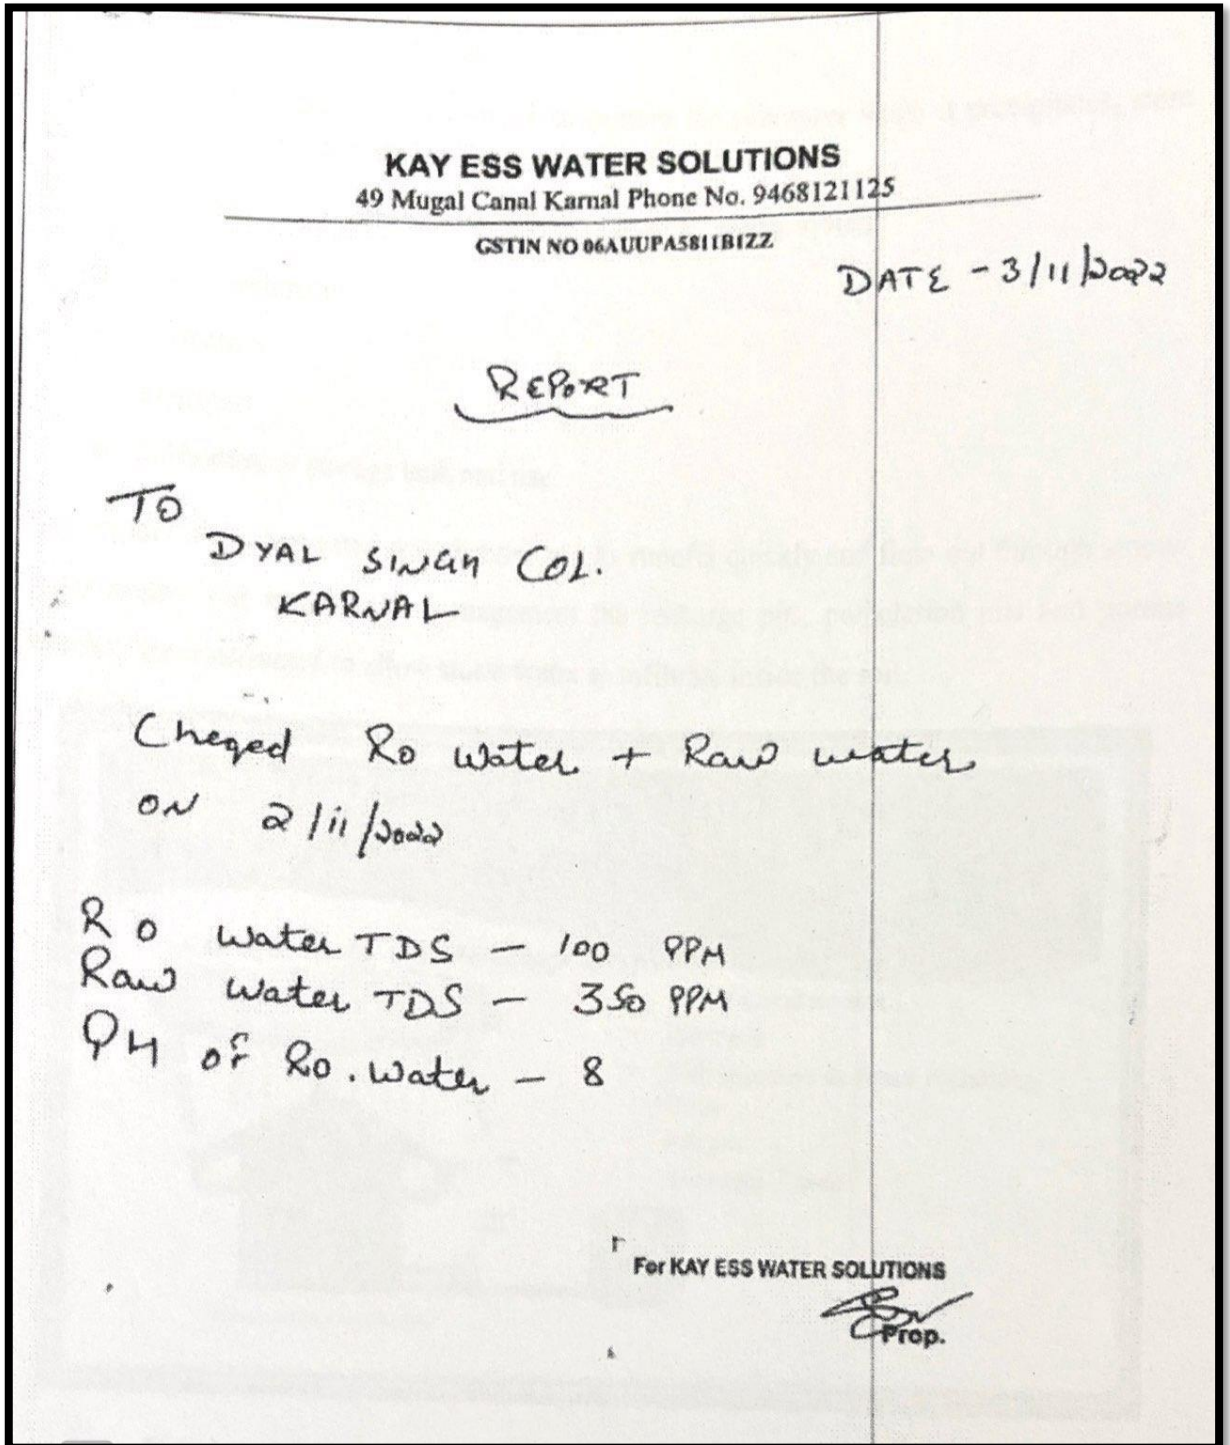 KAY ESS WATER SOLUTIONS
49 Mugal Canal Karnal Phone No. 9468121125
GSTIN NO 06AUUPA5811B1ZZ
DATE - 3/11/2022
REPORT
TO
DYAL SINGH COL.
KARNAL
Cheqed Ro Water + Raw water
ON 2/11/2022
R O Water TDS - 100 PPM
Raw Water TDS - 350 PPM
PH of Ro. Water - 8
For KAY ESS WATER SOLUTIONS
Prop.